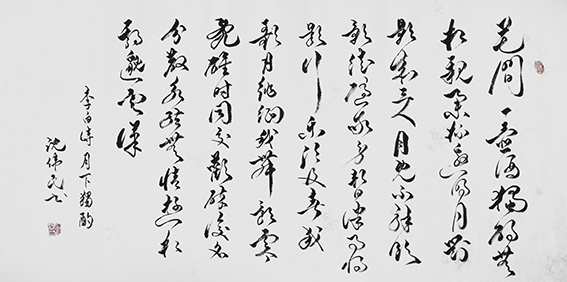 花間一壺酒獨酌無
相親舉杯邀明月對
影成三人月既不解飲
影徒隨我身暫伴月將
影行樂須及春我
歌月徘徊我舞影零
亂醒時同交歡醉後各
分散永結無情遊相
期邈雲漢
李白詩月下獨酌
沈伟民书